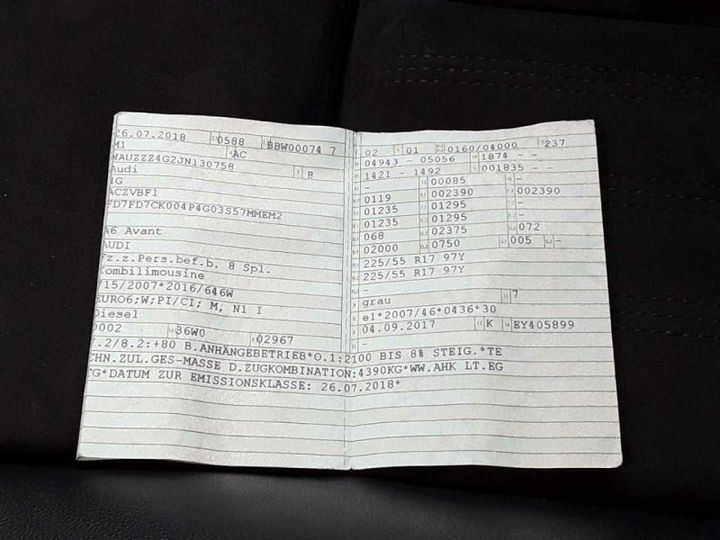 26.07.2018 0588 BBW00074 7
M1 AC
WAUZZZ4G2JN130758 8
Audi
4G
ACZVBF1
FD7FD7CK004P4G03S57MMEM2
-
A6 Avant
AUDI
Fz.z.Pers.bef.b. 8 Spl.
Kombilimousine
715/2007*2016/646W
EURO6;W;PI/CI; M, N1 I
Diesel
0002 36W0 02967
7.2/8.2:+80 B.ANHÄNGEBETRIEB*O.1:2100 BIS 8% STEIG.*TE
CHN.ZUL.GES-MASSE D.ZUGKOMBINATION:4390KG*WW.AHK LT.EG
TG*DATUM ZUR EMISSIONSKLASSE: 26.07.2018*
02 01 0160/04000 237
04943 - 05056 1874 - -
1421 - 1492 001835 -
- 00085 -
0119 002390 002390
01235 01295 -
01235 01295 -
068 02375 072
02000 0750 005 -
225/55 R17 97Y
225/55 R17 97Y
-
grau 7
e1*2007/46*0436*30
04.09.2017 K EY405899
-